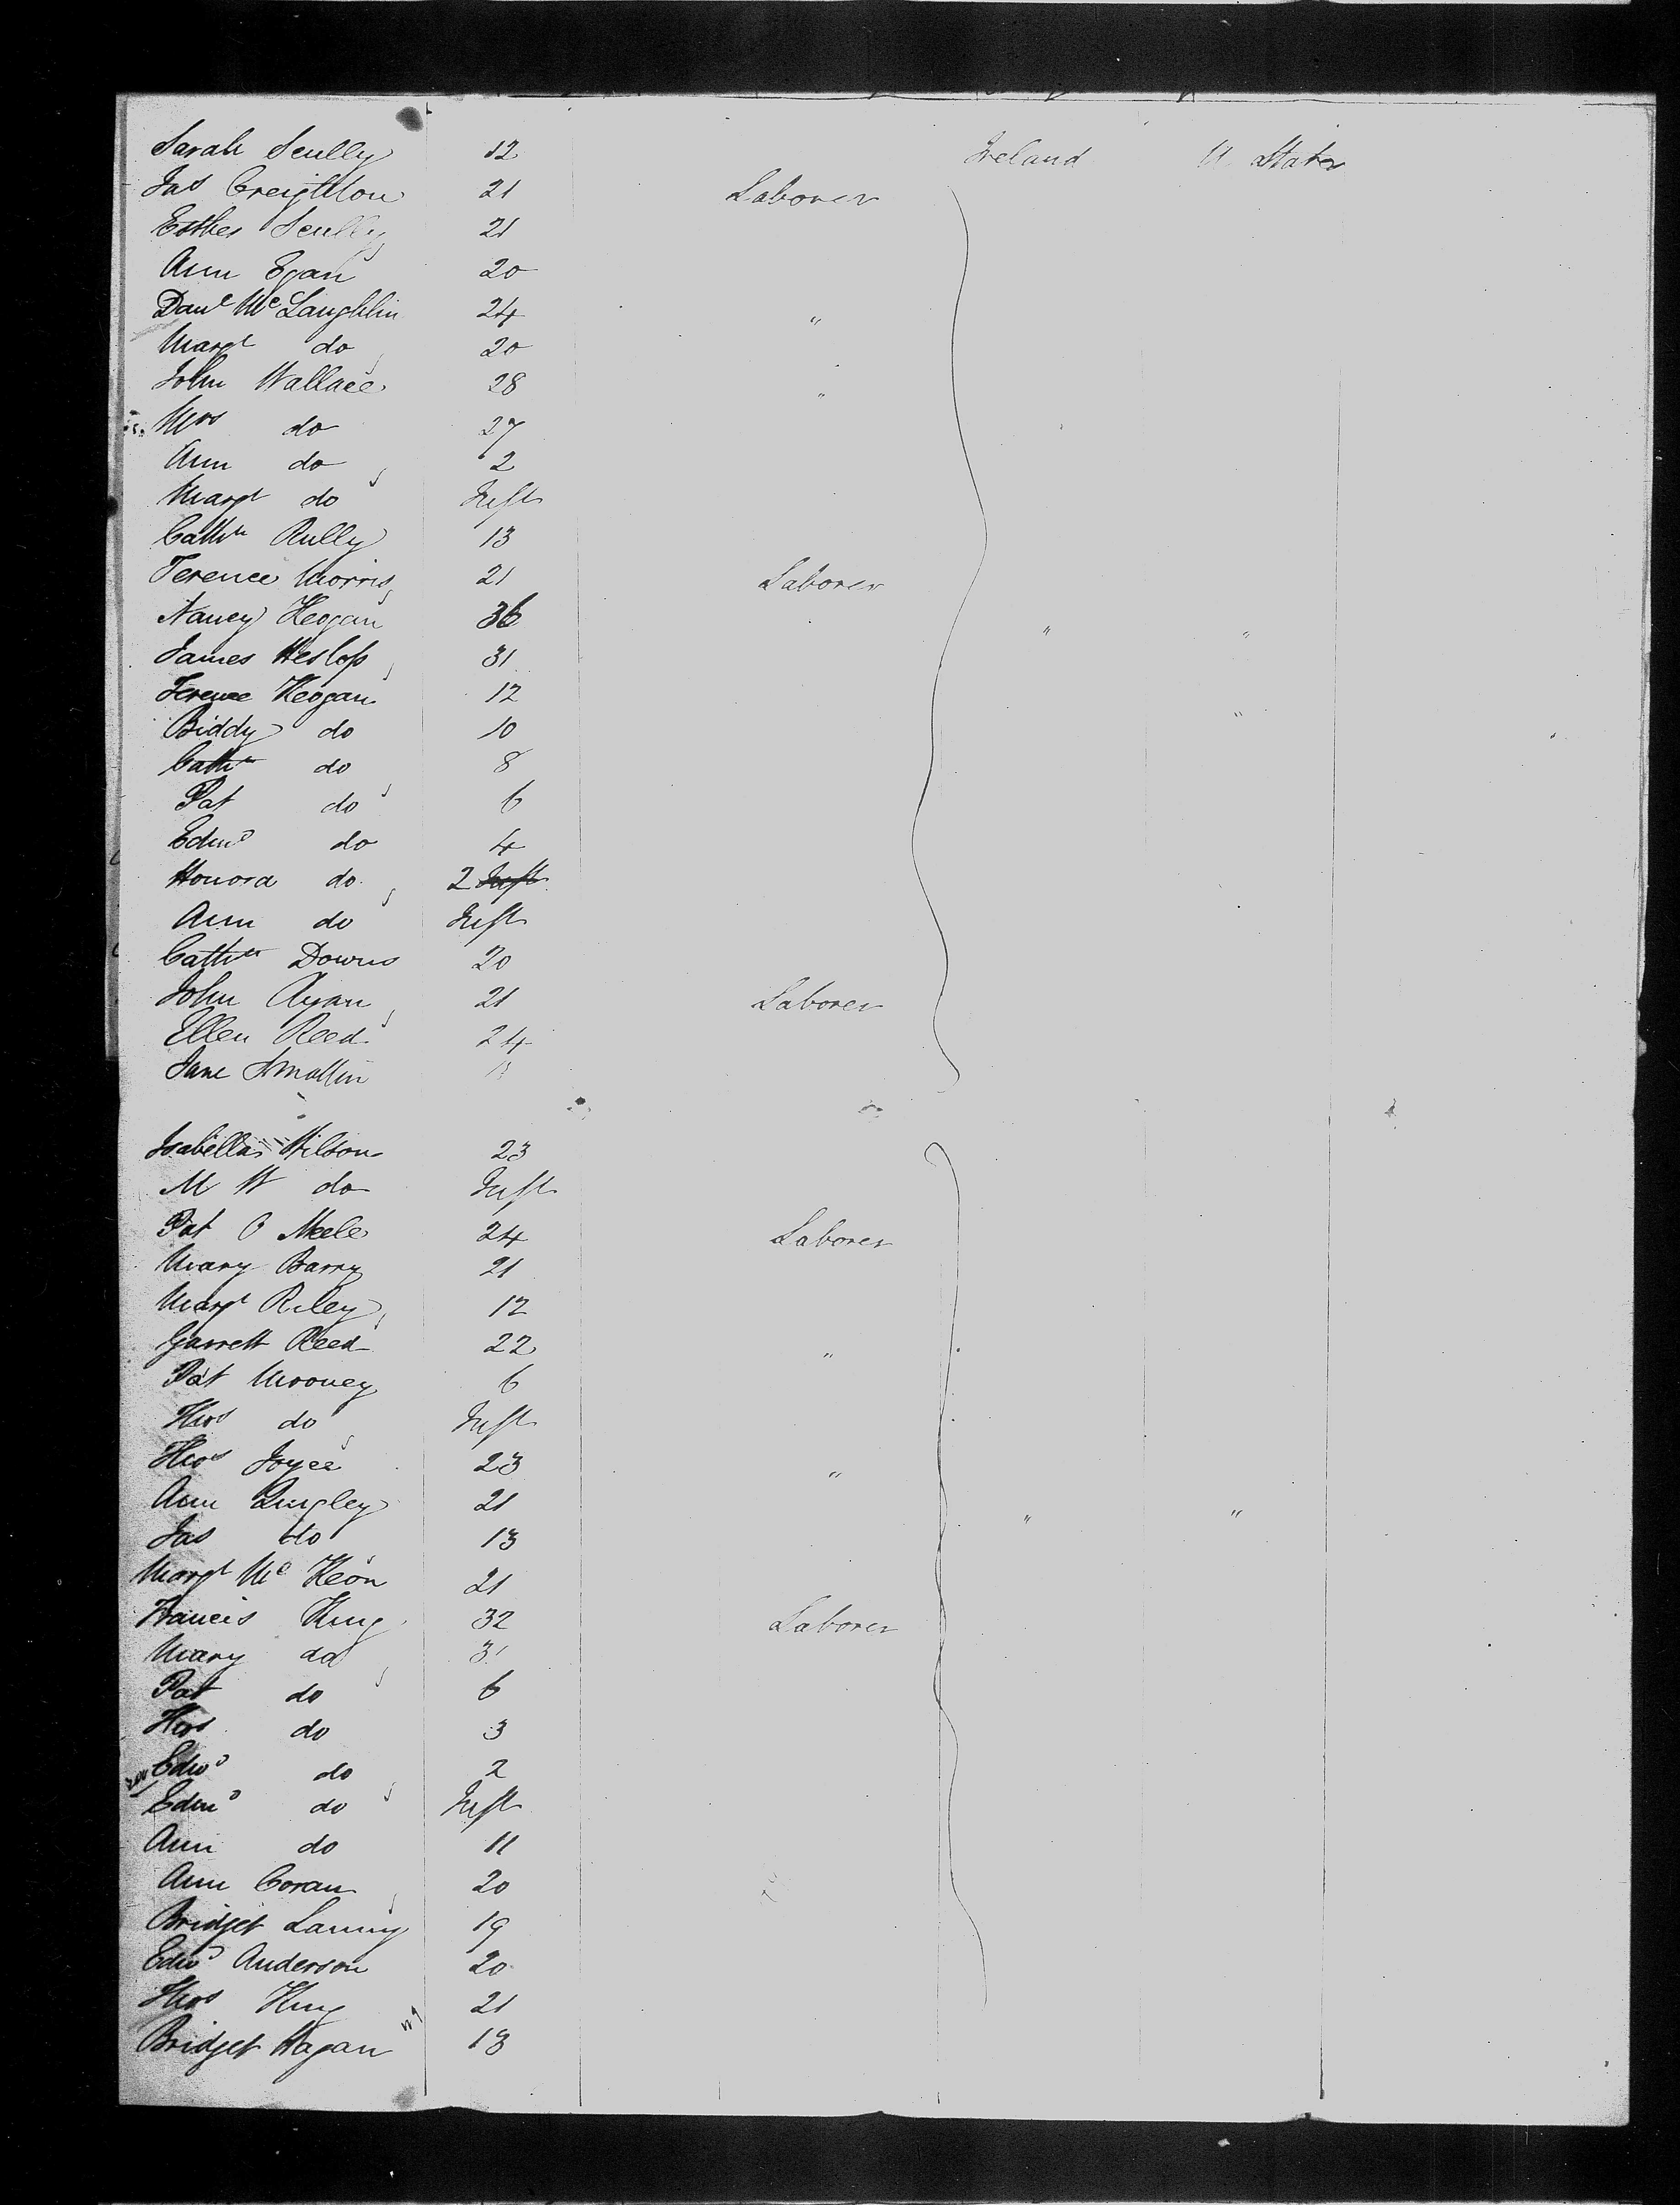 Sarah Scully 12 Ireland U States
Jas Creighton 21 Laborer
Esther Scully 21
Ann Egan 20
Danl McLaughlin 24 "
Margt do 20
John Wallace 28 "
Mrs do 27
Ann do 2
Margt do Inft
Cathn Rully 13
Terence Morris 21 Laborer
Nancy Keogan 36 " "
James Heslop 31
Terence Keogan 12 "
Biddy do 10
Cathn do 8
Pat do 6
Edwd do 4
Honora do 2 Inft
Ann do Inft
Cathn Downs 20
John Ryan 21 Laborer
Ellen Reed 24
Jane
Isabella Wilson 23
M W do Inft
Pat O Meele 24 Laborer
Mary Barry 21
Margt Riley 12
Garrett Reed 22 "
Pat Mooney 6
Thos do Inft
Thos Joyce 23 "
Ann Quigley 21 " "
Jas do 13
Margt McKeon 21
Francis King 32 Laborer
Mary do 31
Pat do 6
Thos do 3
Edwd do 2
Edmd do Inft
Ann do 11
Ann Coran 20
Bridget Lanny 19
Edwd Anderson 20
Thos King 21
Bridget Hagan 18